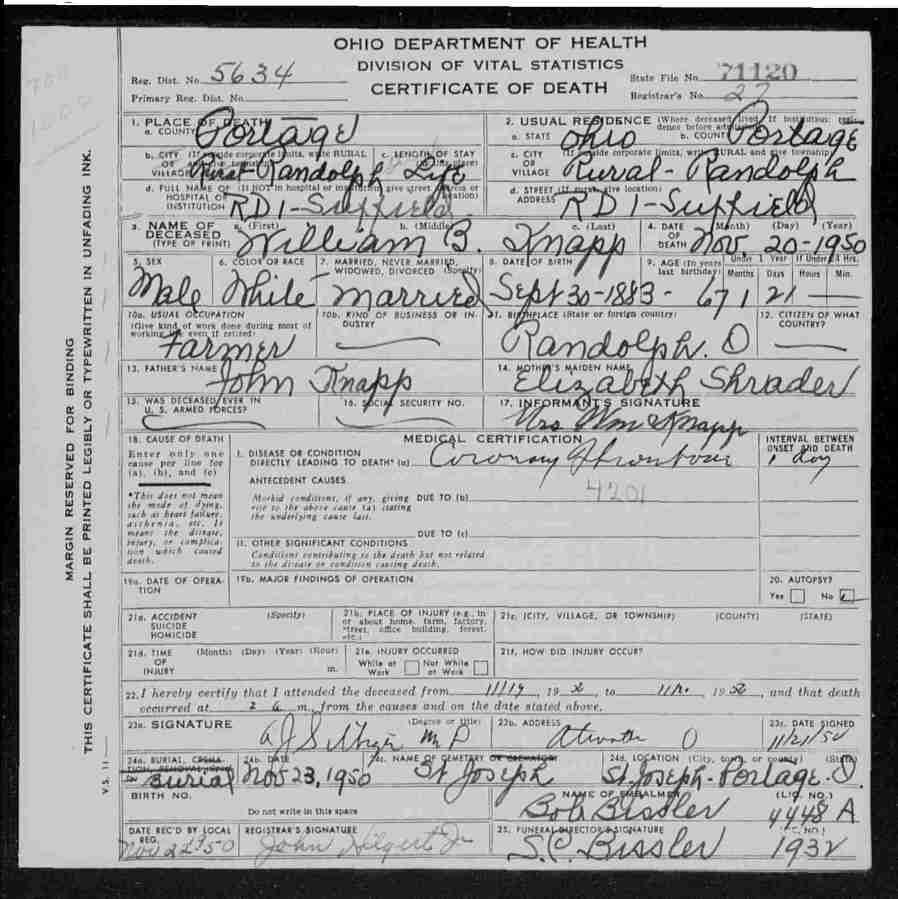 OHIO DEPARTMENT OF HEALTH
DIVISION OF VITAL STATISTICS
CERTIFICATE OF DEATH
Reg. Dist. No. 5634
Primary Reg. Dist. No.
State File No. 71120
Registrar's No. 27
1. PLACE OF DEATH
a. COUNTY Portage
2. USUAL RESIDENCE (Where deceased lived. If institution: residence before admission)
a. STATE Ohio b. COUNTY Portage
b. CITY (If outside corporate limits, write RURAL
OR
VILLAGE Rural-Randolph
c. LENGTH OF STAY
Life
c. CITY (If outside corporate limits, write RURAL and give township)
OR
VILLAGE Rural-Randolph
d. FULL NAME OF (If NOT in hospital or institution, give street address or location)
HOSPITAL OR
INSTITUTION RD 1-Suffield
d. STREET (If rural, give location)
ADDRESS RD 1-Suffield
3. NAME OF DECEASED (TYPE OR PRINT)
a. (First) b. (Middle) c. (Last)
William B. Knapp
4. DATE OF DEATH (Month) (Day) (Year)
Nov. 20-1950
5. SEX
Male
6. COLOR OR RACE
White
7. MARRIED, NEVER MARRIED, WIDOWED, DIVORCED (Specify)
Married
8. DATE OF BIRTH
Sept 30-1883-
9. AGE (In years last birthday)
67
Under 1 Year If Under 24 Hrs.
Months Days Hours Min.
1 21
10a. USUAL OCCUPATION
(Give kind of work done during most of working life, even if retired)
Farmer
10b. KIND OF BUSINESS OR INDUSTRY
11. BIRTHPLACE (State or foreign country)
Randolph. O
12. CITIZEN OF WHAT COUNTRY?
13. FATHER'S NAME
John Knapp
14. MOTHER'S MAIDEN NAME
Elizabeth Shrader
15. WAS DECEASED EVER IN U. S. ARMED FORCES?
16. SOCIAL SECURITY NO.
17. INFORMANT'S SIGNATURE
Mrs Wm Knapp
18. CAUSE OF DEATH
Enter only one cause per line for (a), (b), and (c)
*This does not mean the mode of dying, such as heart failure, asthenia, etc. It means the disease, injury, or complication which caused death.
MEDICAL CERTIFICATION
INTERVAL BETWEEN ONSET AND DEATH
I. DISEASE OR CONDITION
DIRECTLY LEADING TO DEATH* (a) Coronary Thrombosis
1 day
ANTECEDENT CAUSES
4201
Morbid conditions, if any, giving rise to the above cause (a) stating the underlying cause last.
DUE TO (b)
DUE TO (c)
II. OTHER SIGNIFICANT CONDITIONS
Conditions contributing to the death but not related to the disease or condition causing death.
19a. DATE OF OPERATION
19b. MAJOR FINDINGS OF OPERATION
20. AUTOPSY?
Yes No
21a. ACCIDENT SUICIDE HOMICIDE (Specify)
21b. PLACE OF INJURY (e.g., in or about home, farm, factory, street, office building, forest, etc.)
21c. (CITY, VILLAGE, OR TOWNSHIP) (COUNTY) (STATE)
21d. TIME OF INJURY (Month) (Day) (Year) (Hour) m.
21e. INJURY OCCURRED
While at Work Not While at Work
21f. HOW DID INJURY OCCUR?
22. I hereby certify that I attended the deceased from 11/19, 1950, to 11/20, 1950, and that death
occurred at 2 a m., from the causes and on the date stated above.
23a. SIGNATURE (Degree or title)
M D
23b. ADDRESS
Atwater O
23c. DATE SIGNED
11/21/50
24a. BURIAL, CREMATION, REMOVAL
Burial
24b. DATE
Nov 23, 1950
24c. NAME OF CEMETERY OR CREMATORY
St Joseph
24d. LOCATION (City, town, or county) (State)
St. Joseph-Portage. O
BIRTH NO.
Do not write in this space
NAME OF EMBALMER (LIC. NO.)
Bob Bissler 4448 A
DATE REC'D BY LOCAL REG.
Nov 22 1950
REGISTRAR'S SIGNATURE
John Hilgert Jr
25. FUNERAL DIRECTOR'S SIGNATURE (LIC. NO.)
S.C. Bissler 1932
MARGIN RESERVED FOR BINDING
THIS CERTIFICATE SHALL BE PRINTED LEGIBLY OR TYPEWRITTEN IN UNFADING INK.
V.S. 11